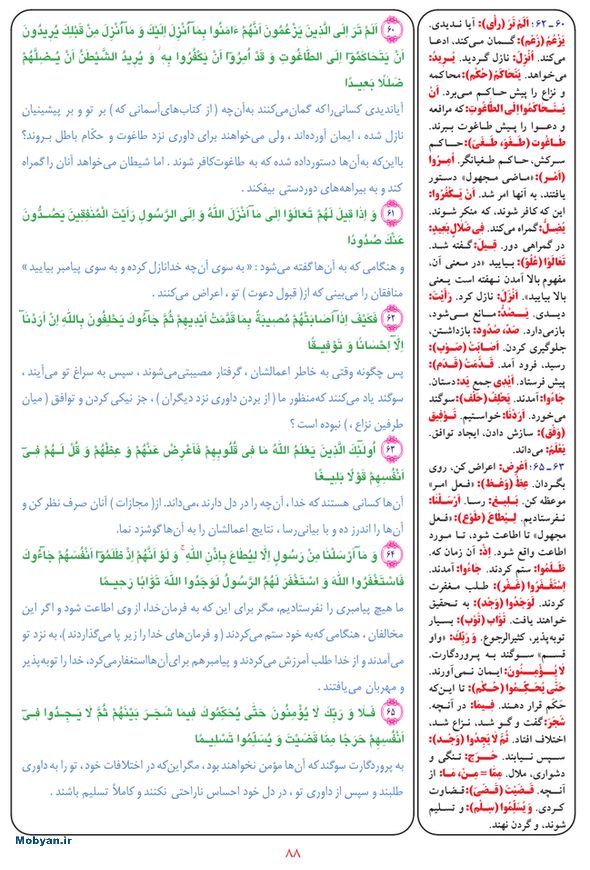 ۶۰ أَلَمْ تَرَ إِلَى الَّذينَ يَزْعُمُونَ أَنَّهُمْ ءَامَنُوا بِمَآ أُنْزِلَ إِلَيْكَ وَ مَآ أُنْزِلَ مِنْ قَبْلِكَ يُريدُونَ
أَنْ يَتَحاكَمُوٓا إِلَى الطّاغُوتِ وَ قَدْ أُمِرُوٓا أَنْ يَكْفُرُوا بِهِ وَ يُريدُ الشَّيْطٰنُ أَنْ يُضِلَّهُمْ
ضَلٰلًا بَعيدًا
آیاندیدی کسانی‌راکه گمان‌می‌کنند به‌آن‌چه ( از کتاب‌های‌آسمانی که ) بر تو و بر پیشینیان
نازل شده ، ایمان آورده‌اند ، ولی می‌خواهند برای داوری نزد طاغوت و حکّام باطل بروند؟
بااین‌که به‌آن‌ها دستورداده شده که به طاغوت‌کافر شوند . اما شیطان می‌خواهد آنان را گمراه
کند و به بیراهه‌های دوردستی بیفکند .
۶۱ وَ إِذا قيلَ لَهُمْ تَعالَوْا إِلى مَآ أَنْزَلَ اللّٰهُ وَ إِلَى الرَّسُولِ رَأَيْتَ الْمُنٰفِقينَ يَصُدُّونَ
عَنْكَ صُدُودًا
و هنگامی که به آن‌ها گفته می‌شود : « به سوی آن‌چه خدانازل کرده و به سوی پیامبر بیایید »
منافقان را می‌بینی که از( قبول دعوت ) تو ، اعراض می‌کنند .
۶۲ فَكَيْفَ إِذآ أَصابَتْهُمْ مُصيبَةٌ بِما قَدَّمَتْ أَيْديهِمْ ثُمَّ جآءُوكَ يَحْلِفُونَ بِاللّٰهِ إِنْ أَرَدْنآ
إِلّآ إِحْسانًا وَ تَوْفيقًا
پس چگونه وقتی به خاطر اعمالشان ، گرفتار مصیبتی‌می‌شوند ، سپس به سراغ تو می‌آیند ،
سوگند یاد می‌کنند که‌منظور ما ( از بردن داوری نزد دیگران ) ، جز نیکی کردن و توافق ( میان
طرفین نزاع ، ) نبوده است ؟
۶۳ أُولٰٓئِكَ الَّذينَ يَعْلَمُ اللّٰهُ ما فى قُلُوبِهِمْ فَأَعْرِضْ عَنْهُمْ وَ عِظْهُمْ وَ قُلْ لَهُمْ فىٓ
أَنْفُسِهِمْ قَوْلًا بَليغًا
آن‌ها کسانی هستند که خدا ، آن‌چه را در دل دارند ،می‌داند. از( مجازات ) آنان صرف نظر کن و
آن‌ها را اندرز ده و با بیانی‌رسا ، نتایج اعمالشان را به آن‌ها گوشزد نما.
۶۴ وَ مآ أَرْسَلْنا مِنْ رَسُولٍ إِلّا لِيُطاعَ بِإِذْنِ اللّٰهِ وَ لَوْ أَنَّهُمْ إِذْ ظَلَمُوٓا أَنْفُسَهُمْ جآءُوكَ
فَاسْتَغْفَرُوا اللّٰهَ وَ اسْتَغْفَرَ لَهُمُ الرَّسُولُ لَوَجَدُوا اللّٰهَ تَوّابًا رَحيمًا
ما هیچ پیامبری را نفرستادیم، مگر برای این که به فرمان‌خدا، از وی اطاعت شود و اگر این
مخالفان ، هنگامی‌که به‌خود ستم می‌کردند ( و فرمان‌های خدا را زیر پا می‌گذاردند )، به نزد تو
می‌آمدند و از خدا طلب آمرزش می‌کردند و پیامبرهم برای‌آن‌هااستغفارمی‌کرد، خدا را توبه‌پذیر
و مهربان می‌یافتند .
۶۵ فَلا وَ رَبِّكَ لا يُؤْمِنُونَ حَتّٰى يُحَكِّمُوكَ فيما شَجَرَ بَيْنَهُمْ ثُمَّ لا يَجِدُوا فىٓ
أَنْفُسِهِمْ حَرَجًا مِمّا قَضَيْتَ وَ يُسَلِّمُوا تَسْليمًا
به پروردگارت سوگند که آن‌ها مؤمن نخواهند بود ، مگراین‌که در اختلافات خود ، تو را به داوری
طلبند و سپس از داوری تو ، در دل خود احساس ناراحتی نکنند و کاملاً تسلیم باشند .
۶۰ ـ ۶۲: أَلَمْ تَرَ (رأی): آیا ندیدی.
يَزْعُمُ (زَعَمَ): گمان می‌کند، ادعا
می‌کند. أُنْزِلَ: نازل گردید. يُريدُ:
می‌خواهد. يَتَحاكَمُ (حَكَمَ): محاکمه
و نزاع را پیش حاکم می‌برد. أَنْ
يَتَحاكَمُوا إِلَى الطّاغُوتِ: که مرافعه
و دعوا را پیش طاغوت ببرند.
طاغُوت (طَغَوَ، طَغَیَ): حاکم
سرکش، حاکم طغیانگر. أُمِرُوا
(أَمَرَ): «ماضی مجهول» دستور
یافتند، به آنها امر شد. أَنْ يَكْفُرُوا:
این که کافر شوند، که منکر شوند.
يُضِلُّ: گمراه می‌کند. فى ضَلالٍ بَعيدٍ:
در گمراهی دور. قيلَ: گفته شد.
تَعالَوْا (عُلُوّ): بیایید «در معنی آن،
مفهوم بالا آمدن نهفته است یعنی
بالا بیایید». أَنْزَلَ: نازل کرد. رَأَيْتَ:
دیدی. يَصُدُّ: مانع می‌شود،
بازمی‌دارد. صَدّ، صُدُود: بازداشتن،
جلوگیری کردن. أَصابَتْ (صَوَبَ):
رسید، فرود آمد. قَدَّمَتْ (قَدَمَ):
پیش فرستاد. أَيْدى جمع يَد: دستان.
جاءُوا: آمدند. يَحْلِفُ (حَلَفَ): سوگند
می‌خورد. أَرَدْنا: خواستیم. تَوْفيق
(وَفَقَ): سازش دادن، ایجاد توافق.
يَعْلَمُ: می‌داند.
۶۳ ـ ۶۵: أَعْرِضْ: اعراض کن، روی
بگردان. عِظْ (وَعَظَ): «فعل امر»
موعظه کن. بَليغ: رسا. أَرْسَلْنا:
نفرستادیم. لِيُطاعَ (طَوَعَ): «فعل
مجهول» تا اطاعت شود، تا مورد
اطاعت واقع شود. إِذْ: آن زمان که.
ظَلَمُوا: ستم کردند. جاءُوا: آمدند.
اِسْتَغْفَرُوا (غَفَرَ): طلب مغفرت
کردند. لَوَجَدُوا (وَجَدَ): به تحقیق
خواهند یافت. تَوّاب (تَوَبَ): بسیار
توبه‌پذیر، کثیرالرجوع. وَ رَبِّكَ: «واو
قسم» سوگند به پروردگارت.
لا يُؤْمِنُونَ: ایمان نمی‌آورند.
حَتّٰى يُحَكِّمُوا (حَكَمَ): تا این‌که
حَکَم قرار دهند. فيما: در آنچه.
شَجَرَ: گفت و گو شد، نزاع شد،
اختلاف افتاد. ثُمَّ لا يَجِدُوا (وَجَدَ):
سپس نیابند. حَرَج: تنگی و
دشواری، ملال. مِمّا = مِنْ، ما: از
آنچه. قَضَيْتَ (قَضَیَ): قضاوت
کردی. وَ يُسَلِّمُوا (سَلِمَ): و تسلیم
شوند، و گردن نهند.
Mobyan.ir
۸۸